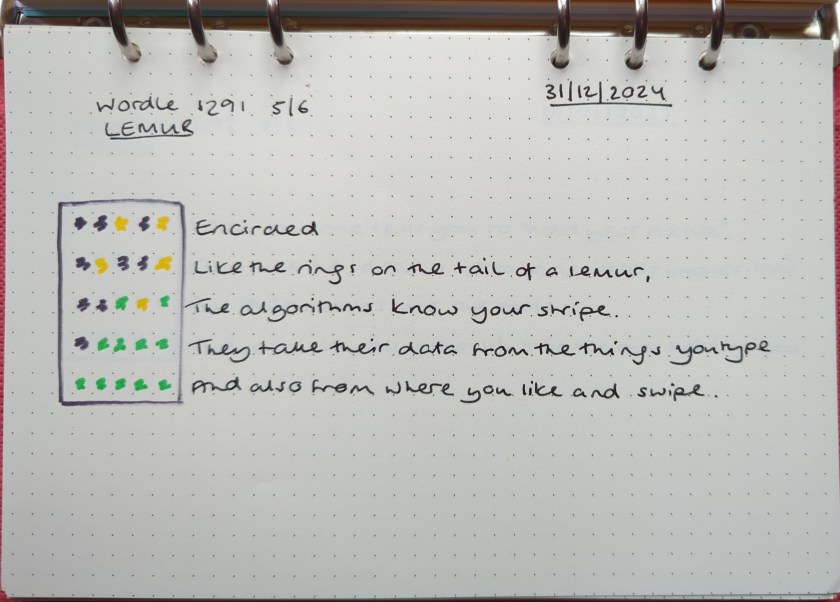 Wordle 1291 5/6
31/12/2024
LEMUR
Encircled
Like the rings on the tail of a lemur,
The algorithms know your stripe.
They take their data from the things you type
And also from where you like and swipe.